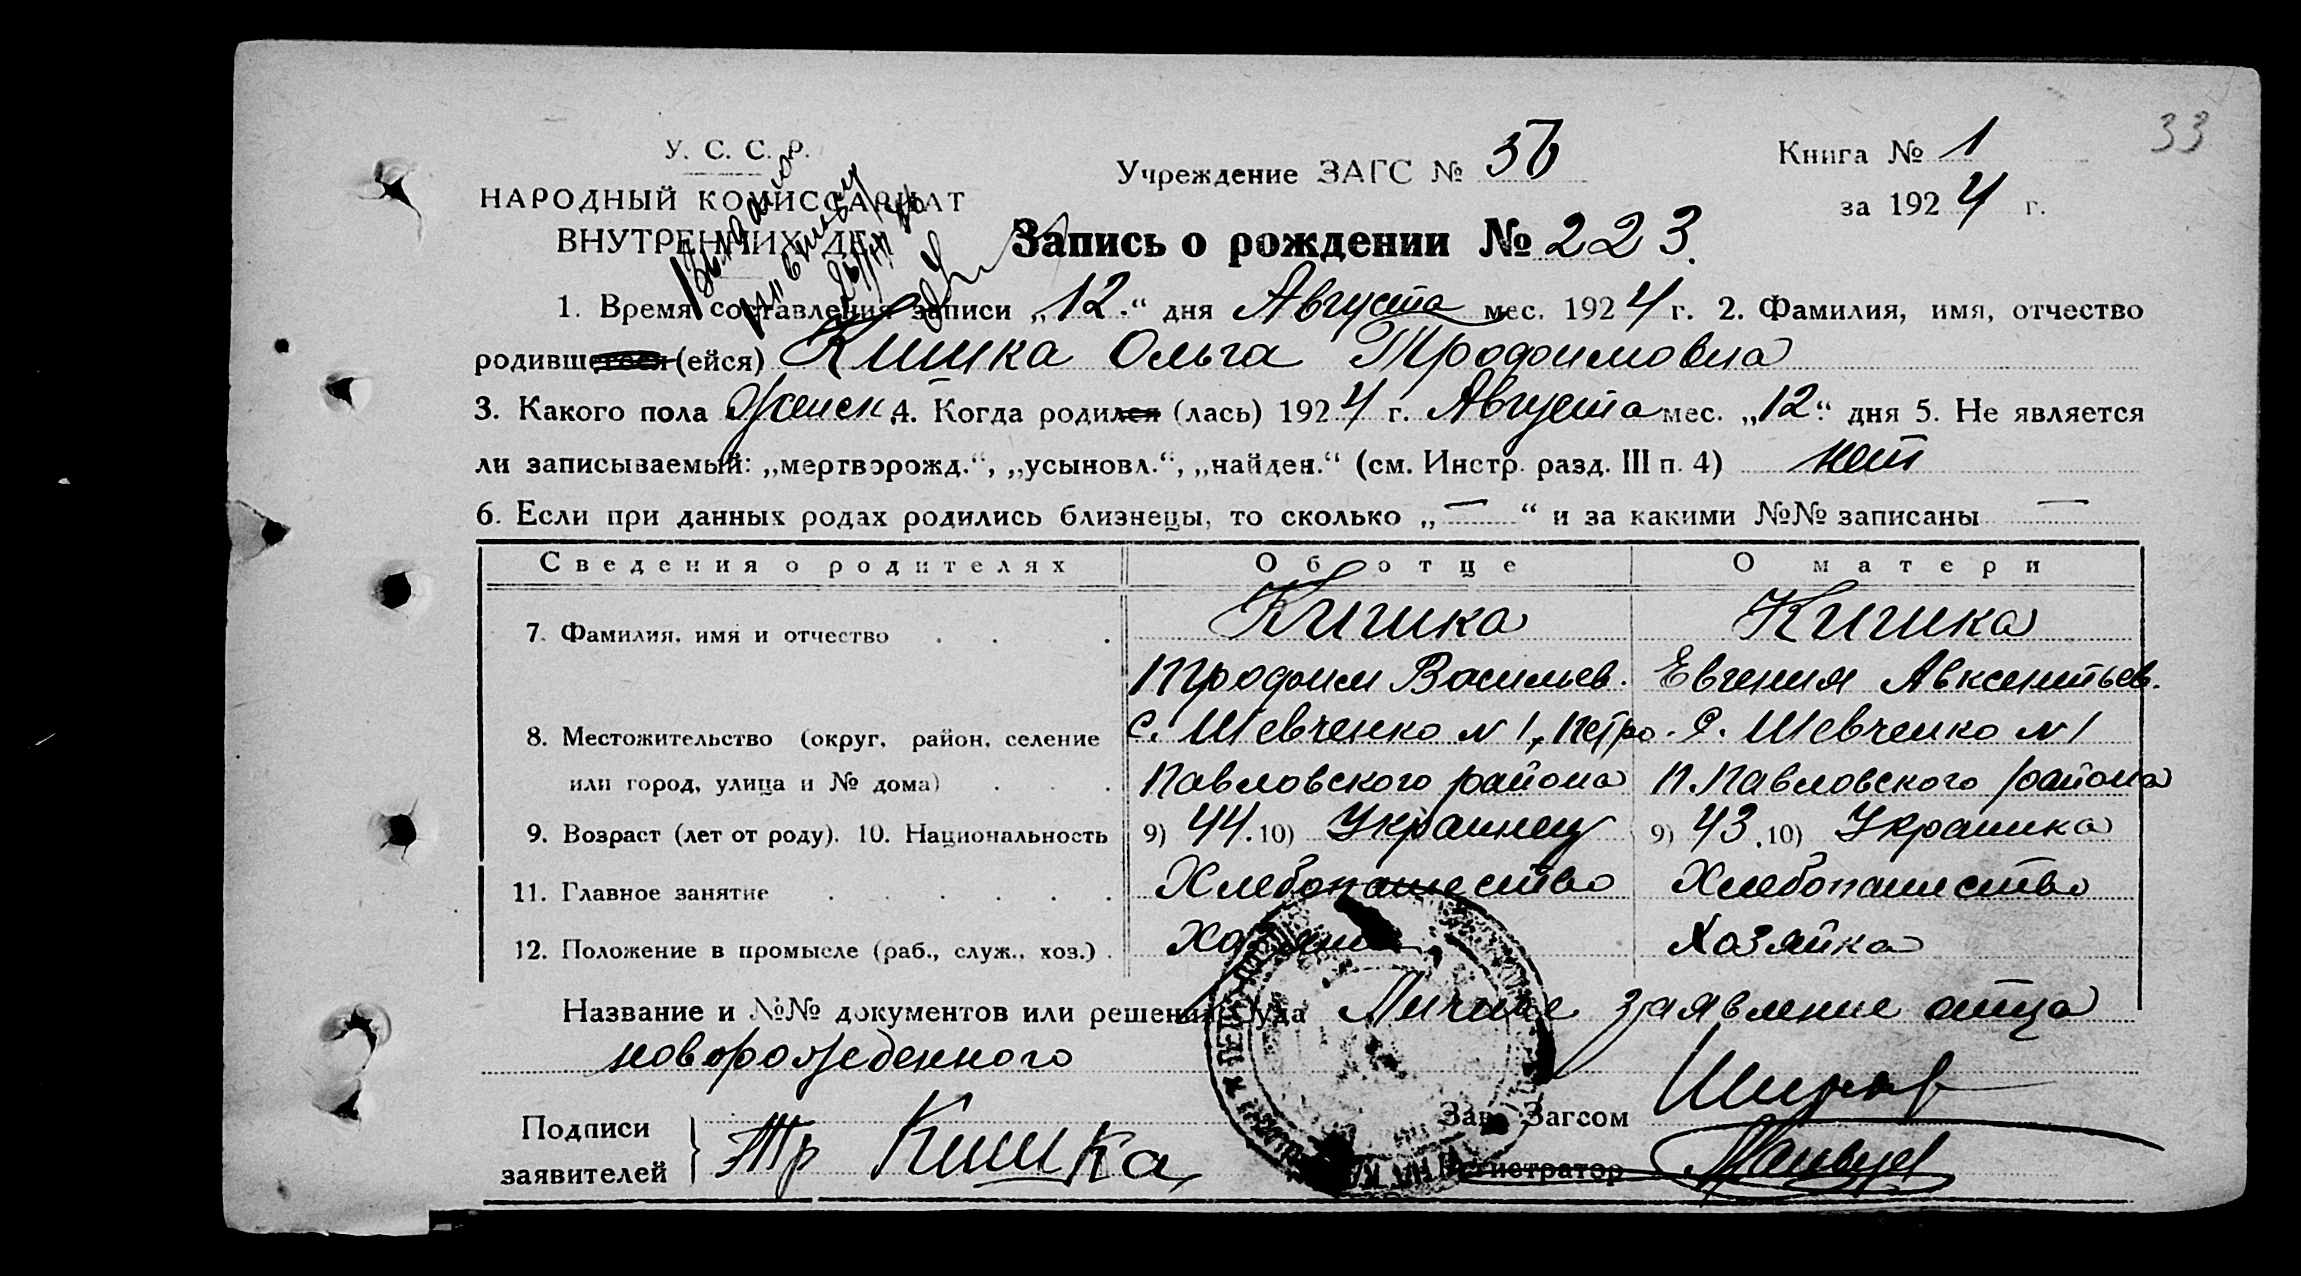 33
У. С. С. Р.
НАРОДНЫЙ КОМИССАРИАТ
ВНУТРЕННИХ ДЕЛ
Учреждение ЗАГС № 36
Книга № 1
за 1924 г.
Запись о рождении № 223.
1. Время составления записи „12.“ дня Августа мес. 1924 г. 2. Фамилия, имя, отчество
родившегося (ейся) Кишка Ольга Трофимовна
3. Какого пола Женск 4. Когда родился (лась) 1924 г. Августа мес. „12“ дня 5. Не является
ли записываемый: „мертворожд.“, „усыновл.“, „найден.“ (см. Инстр. разд. III п. 4) нет
6. Если при данных родах родились близнецы, то сколько „—“ и за какими №№ записаны —
Сведения о родителях Об отце О матери
7. Фамилия, имя и отчество Кишка Кишка
Трофим Васильев. Евгения Авксентьев.
8. Местожительство (округ, район, селение с. Шевченко N 1, Петро- С. Шевченко N 1
или город, улица и № дома) Павловского района П.Павловского района
9. Возраст (лет от роду). 10. Национальность 9) 44. 10) Украинец 9) 43. 10) Украинка
11. Главное занятие Хлебопашество Хлебопашество
12. Положение в промысле (раб., служ., хоз.) Хозяин Хозяйка
Название и №№ документов или решений Суда Личное заявление отца
новорожденного
Подписи
заявителей } Тр Кишка
Зав. Загсом
Регистратор